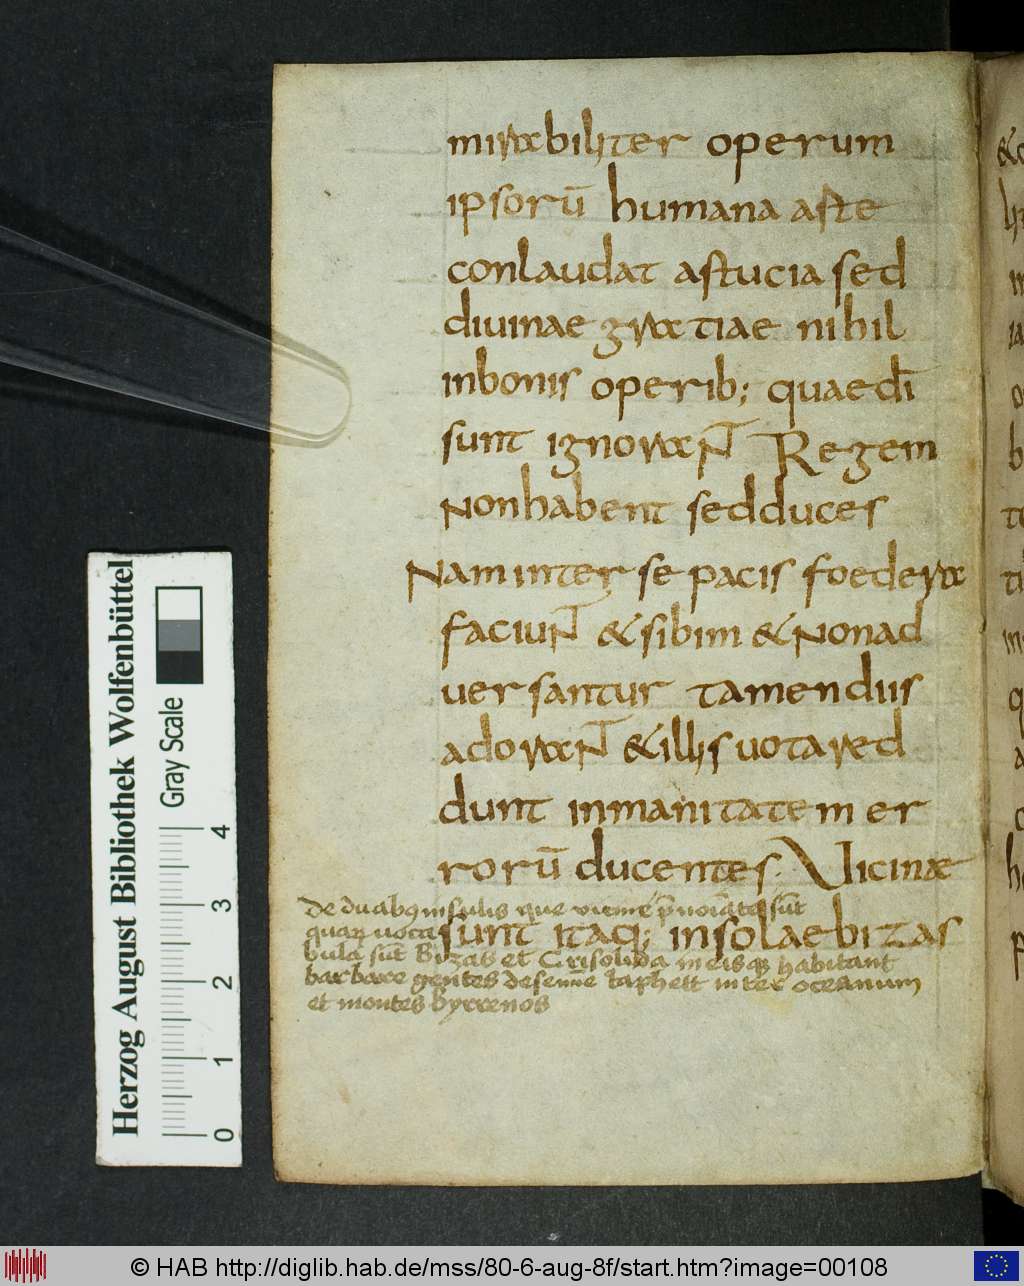 mirabiliter operum
ipsorū humana aste
conlaudat astucia sed
diuinae gratiae nihil
inbonis operib; quae dī
sunt ignorant Regem
Non habent sed duces
Nam inter se pacis foedera
faciunt & sibim & Non ad
uersantur tamen diis
adorant & illis uota red
dunt inmanitatem er
rorū ducentes. Uicinae
sunt itaq; insolae bizas
De duabus insulis que uicine
quar uoca
bula sūt Bizas et Crisolida in eis habitant
barbare gentes inter oceanum
et montes byrrenos
Herzog August Bibliothek Wolfenbüttel
Gray Scale
0 1 2 3 4
© HAB http://diglib.hab.de/mss/80-6-aug-8f/start.htm?image=00108